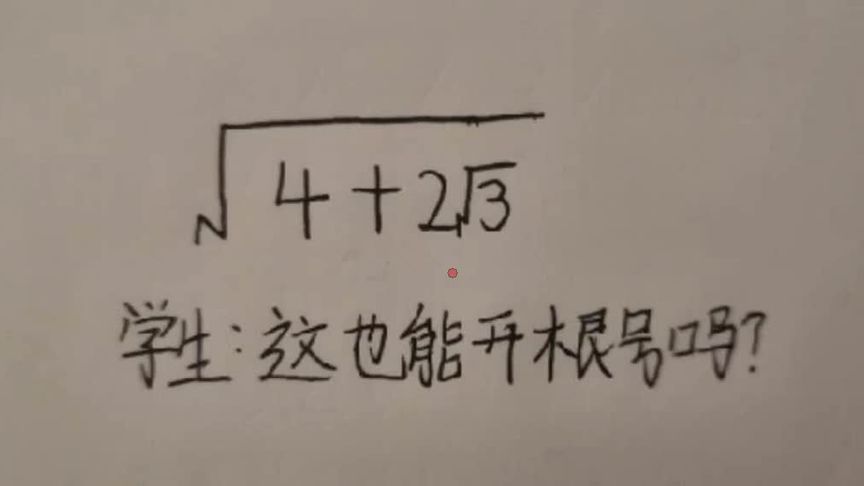 √(4+2√3)
学生:这也能开根号吗?